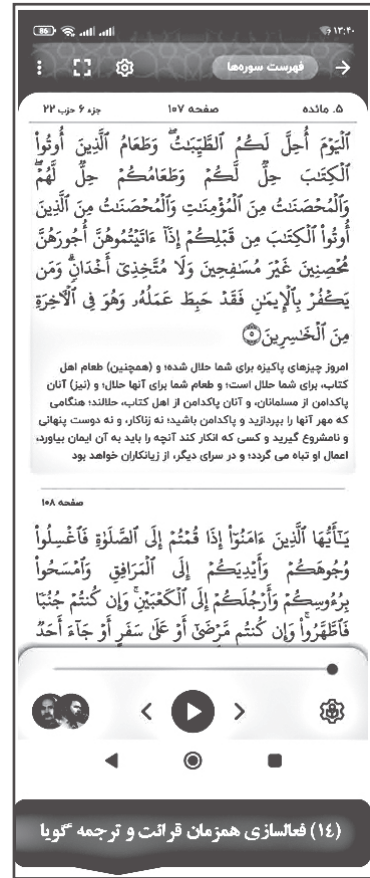 ۱۳:۴۰
86
فهرست سوره‌ها
۵. مائده صفحه ۱۰۷ جزء ۶ حزب ۲۲
ٱلْيَوْمَ أُحِلَّ لَكُمُ ٱلطَّيِّبَٰتُ ۖ وَطَعَامُ ٱلَّذِينَ أُوتُوا۟
ٱلْكِتَٰبَ حِلٌّ لَّكُمْ وَطَعَامُكُمْ حِلٌّ لَّهُمْ ۖ
وَٱلْمُحْصَنَٰتُ مِنَ ٱلْمُؤْمِنَٰتِ وَٱلْمُحْصَنَٰتُ مِنَ ٱلَّذِينَ
أُوتُوا۟ ٱلْكِتَٰبَ مِن قَبْلِكُمْ إِذَآ ءَاتَيْتُمُوهُنَّ أُجُورَهُنَّ
مُحْصِنِينَ غَيْرَ مُسَٰفِحِينَ وَلَا مُتَّخِذِىٓ أَخْدَانٍ ۗ وَمَن
يَكْفُرْ بِٱلْإِيمَٰنِ فَقَدْ حَبِطَ عَمَلُهُۥ وَهُوَ فِى ٱلْءَاخِرَةِ
مِنَ ٱلْخَٰسِرِينَ ۵
امروز چیزهای پاکیزه برای شما حلال شده؛ و (همچنین) طعام اهل
کتاب، برای شما حلال است؛ و طعام شما برای آنها حلال؛ و (نیز) آنان
پاکدامن از مسلمانان، و آنان پاکدامن از اهل کتاب، حلالند؛ هنگامی
که مهر آنها را بپردازید و پاکدامن باشید؛ نه زناکار، و نه دوست پنهانی
و نامشروع گیرید و کسی که انکار کند آنچه را باید به آن ایمان بیاورد،
اعمال او تباه می گردد؛ و در سرای دیگر، از زیانکاران خواهد بود
صفحه ۱۰۸
يَٰٓأَيُّهَا ٱلَّذِينَ ءَامَنُوٓا۟ إِذَا قُمْتُمْ إِلَى ٱلصَّلَوٰةِ فَٱغْسِلُوا۟
وُجُوهَكُمْ وَأَيْدِيَكُمْ إِلَى ٱلْمَرَافِقِ وَٱمْسَحُوا۟
بِرُءُوسِكُمْ وَأَرْجُلَكُمْ إِلَى ٱلْكَعْبَيْنِ ۚ وَإِن كُنتُمْ جُنُبًا
فَٱطَّهَّرُوا۟ ۚ وَإِن كُنتُم مَّرْضَىٰٓ أَوْ عَلَىٰ سَفَرٍ أَوْ جَآءَ أَحَدٌ
(۱٤) فعالسازی همزمان قرائت و ترجمه گویا